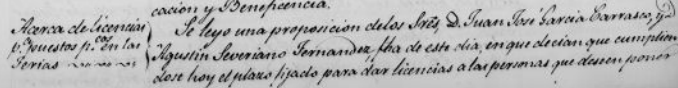 cacion y Beneficencia.
Acerca de licencias
pª. puestos pcos. en las
Ferias
Se leyo una proposicion de los Sres. D. Juan José Garcia Carrasco, y D.
Agustin Severiano Fernandez fha de este dia, en que decian que cumplien
dose hoy el plazo fijado para dar licencias a las personas que deseen poner